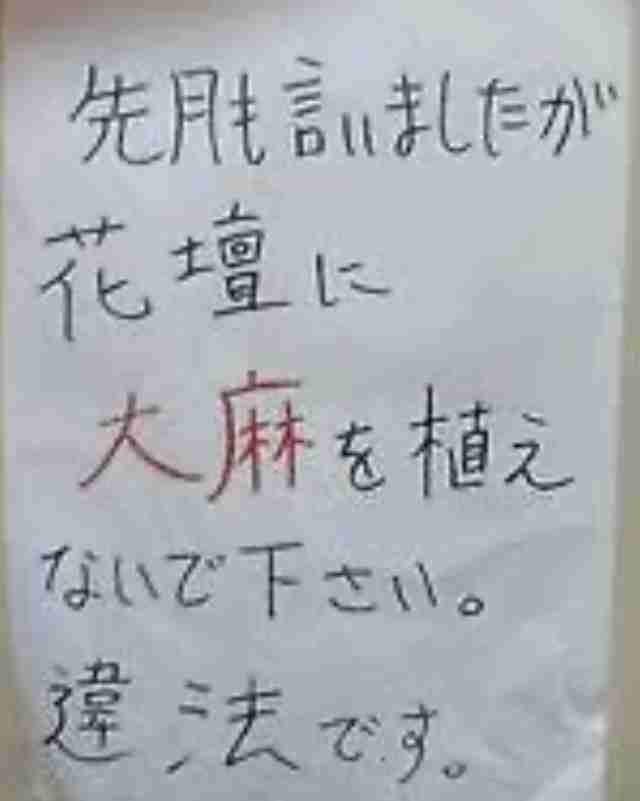 先月も言いましたが
花壇に
大麻を植え
ないで下さい。
違法です。